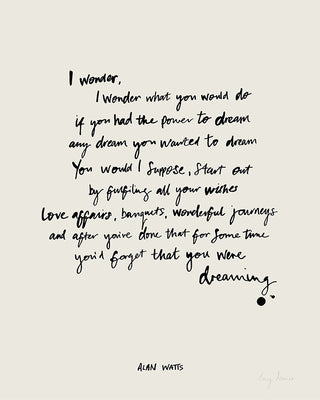 I wonder,
I wonder what you would do
if you had the power to dream
any dream you wanted to dream
You would I suppose, Start out
by fulfiling all your wishes
Love affairs, banquets, wonderful journeys
and after you've done that for some time
you'd forget that you were
dreaming
ALAN WATTS